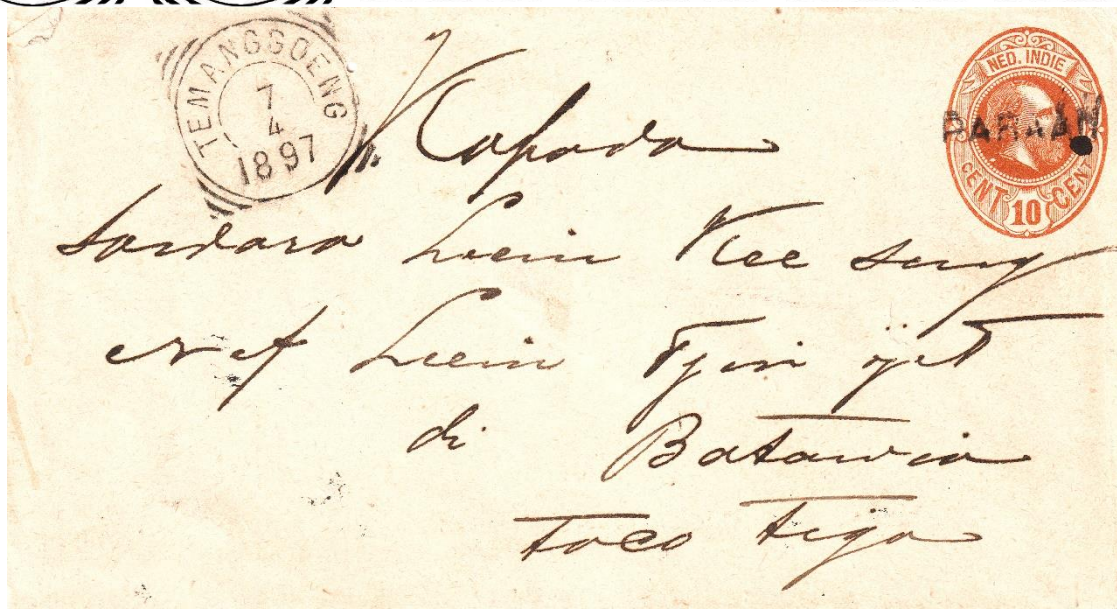 TEMANGGOENG
7
4
1897
NED. INDIE
PARAAN
CENT 10 CENT
Kapada
Soudara Liem Kee
Liem Tjin
di Batawia
Toco Tiga